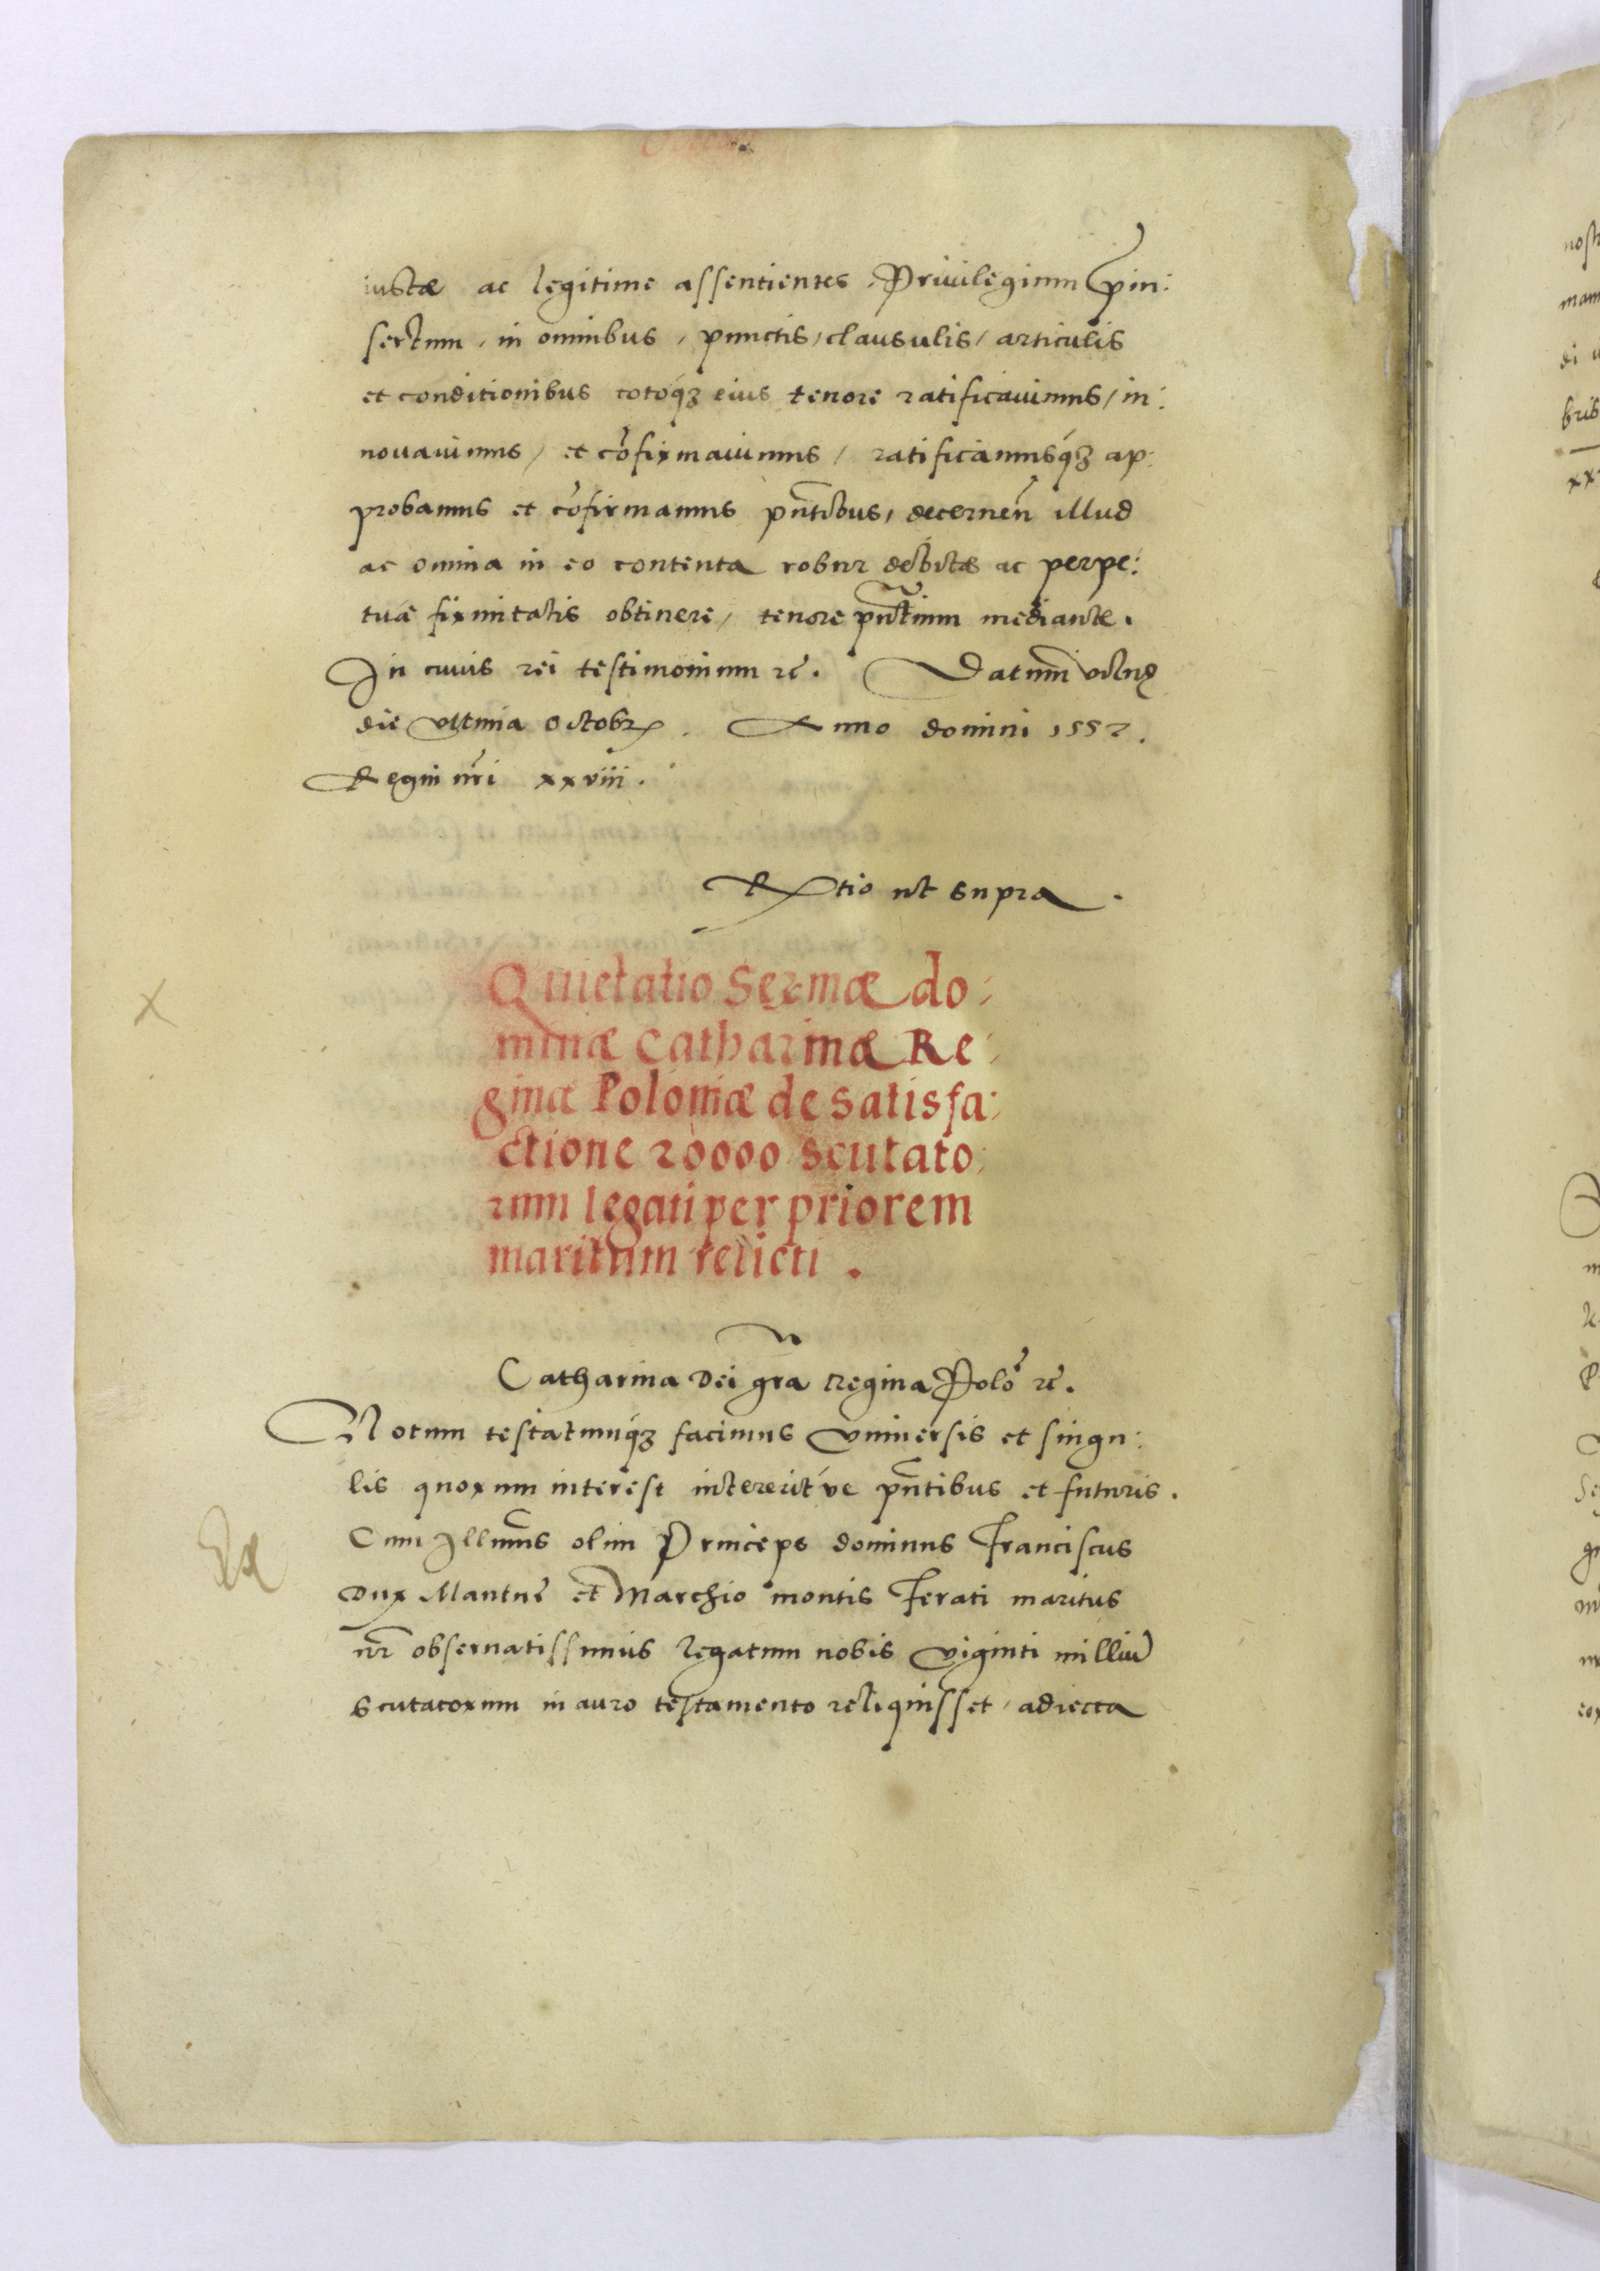 iustæ ac legitime assentientes, Priuilegium p̃in:
sertum, in omnibus, punctis, clausulis, articulis
et conditionibus totoq́ꝫ eius tenore ratificauimus, in:
nouauimus, et cõfirmauimus, ratificamusq́ꝫ ap:
probamus et cõfirmamus pñtibus, decernen̄ illud
ac omnia in eo contenta robur debitæ ac perpe:
tuæ firmitatis obtinere, tenore pñtium mediante.
In cuius rei testimonium ꝛc̃. Datum
die vltima Octobꝝ. Anno domini 1557.
Regni nr̃i xxviii.
Rtio ut supra.
Quietatio Sermæ do:
minæ Catharinæ Re:
ginæ Poloniæ de satisfa:
ctione 20000 scutato:
rum legati per priorem
maritum relicti.
Catharina Dei gr̃a Regina Polõ ꝛc̃.
Notum testatumq́ꝫ facimus vniuersis et singu:
lis quorum interest intereritúe pñtibus et futuris.
Cum Illum̃s olim Princeps dominus Franciscus
Dux Mantuę et Marchio montis Ferati maritus
nr̃ obseruatissimus legatum nobis viginti milliũ
scutatorum in auro testamento reliquisset, adiecta